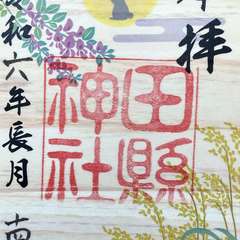 拝
田縣
神社
和六年長月 南